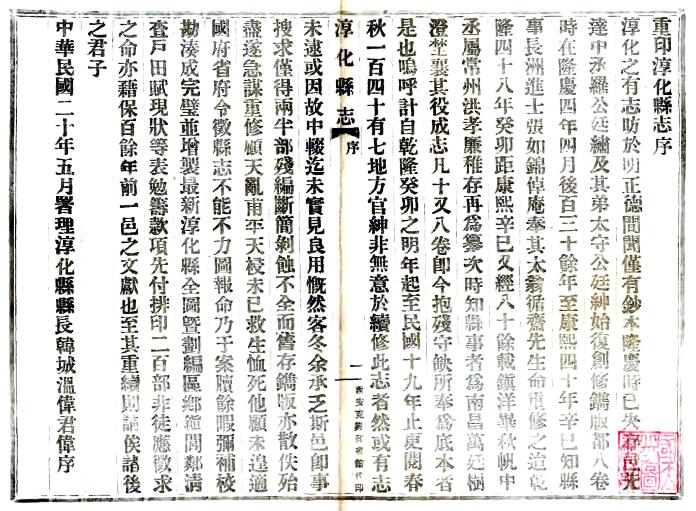 重印淳化縣志序
淳化之有志昉於明正德間聞僅有鈔本隆慶時已失 春邑先
達中丞羅公廷繡及其弟太守公廷紳始復創修鐫版都八卷
時在隆慶四年四月後百三十餘年至康熙四十年辛巳知縣
事長洲進士張如錦倬庵奉其太翁循齋先生命重修之迨乾
隆四十八年癸卯距康熙辛巳又經八十餘載鎮洋畢秋帆中
丞屬常州洪孝廉稚存再爲纂次時知縣事者爲南昌萬廷樹
澄埜襄其役成志凡十又八卷卽今抱殘守缺所奉爲底本者
是也嗚呼計自乾隆癸卯之明年起至民國十九年止更閱春
秋一百四十有七地方官紳非無意於續修此志者然或有
淳化縣志 序
一 西安克興印書館代印
未逮或因故中輟迄未實見良用慨然客冬余承乏斯邑卽事
搜求僅得兩半部殘編斷簡剝蝕不全而舊存鐫版亦散佚殆
盡遂急謀重修顧天亂甫平天祲未已救生恤死他顧未遑適
國府省府令徵縣志不能不力圖報命乃于案牘餘暇彌補校
勘湊成完璧並增製最新淳化縣全圖曁劃編區鄉鎮閭鄰清
查戶田賦現狀等表勉籌款項先付排印二百部非徒應徵求
之命亦藉保百餘年前一邑之文獻也至其重續則請俟諸後
之君子
中華民國二十年五月署理淳化縣縣長韓城溫偉君偉序